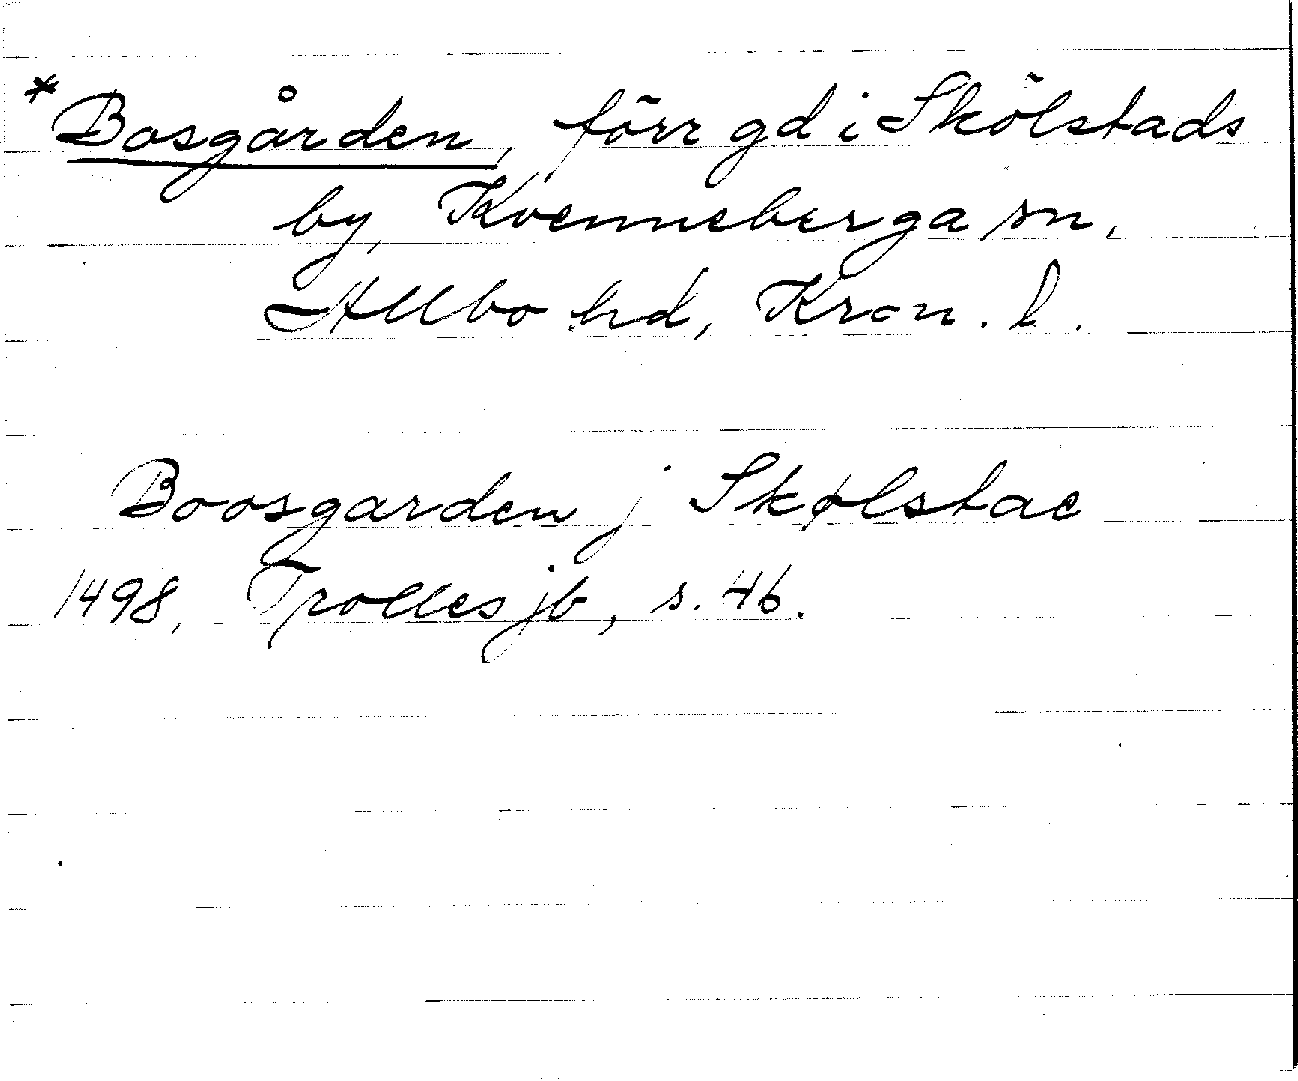 *Bosgården, förr gd i Skölstads
by, Kvenneberga sn,
Allbo hd, Kron. l.
Boosgarden j Skølstae
1498, Trolles jb, s. 46.